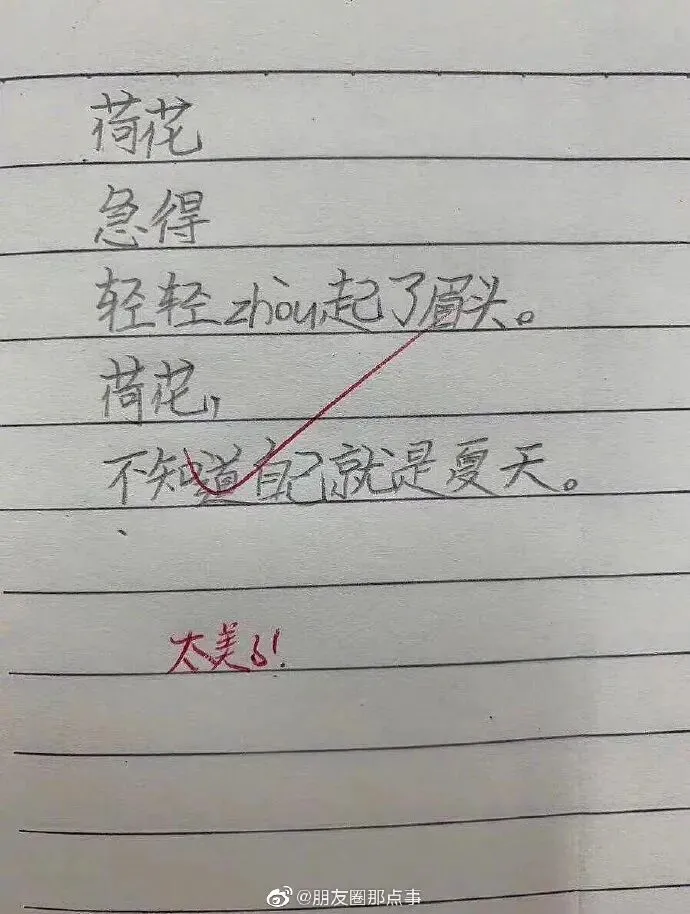 荷花
急得
轻轻zhòu起了眉头。
荷花，
不知道自己就是夏天。
太美了！
@朋友圈那点事